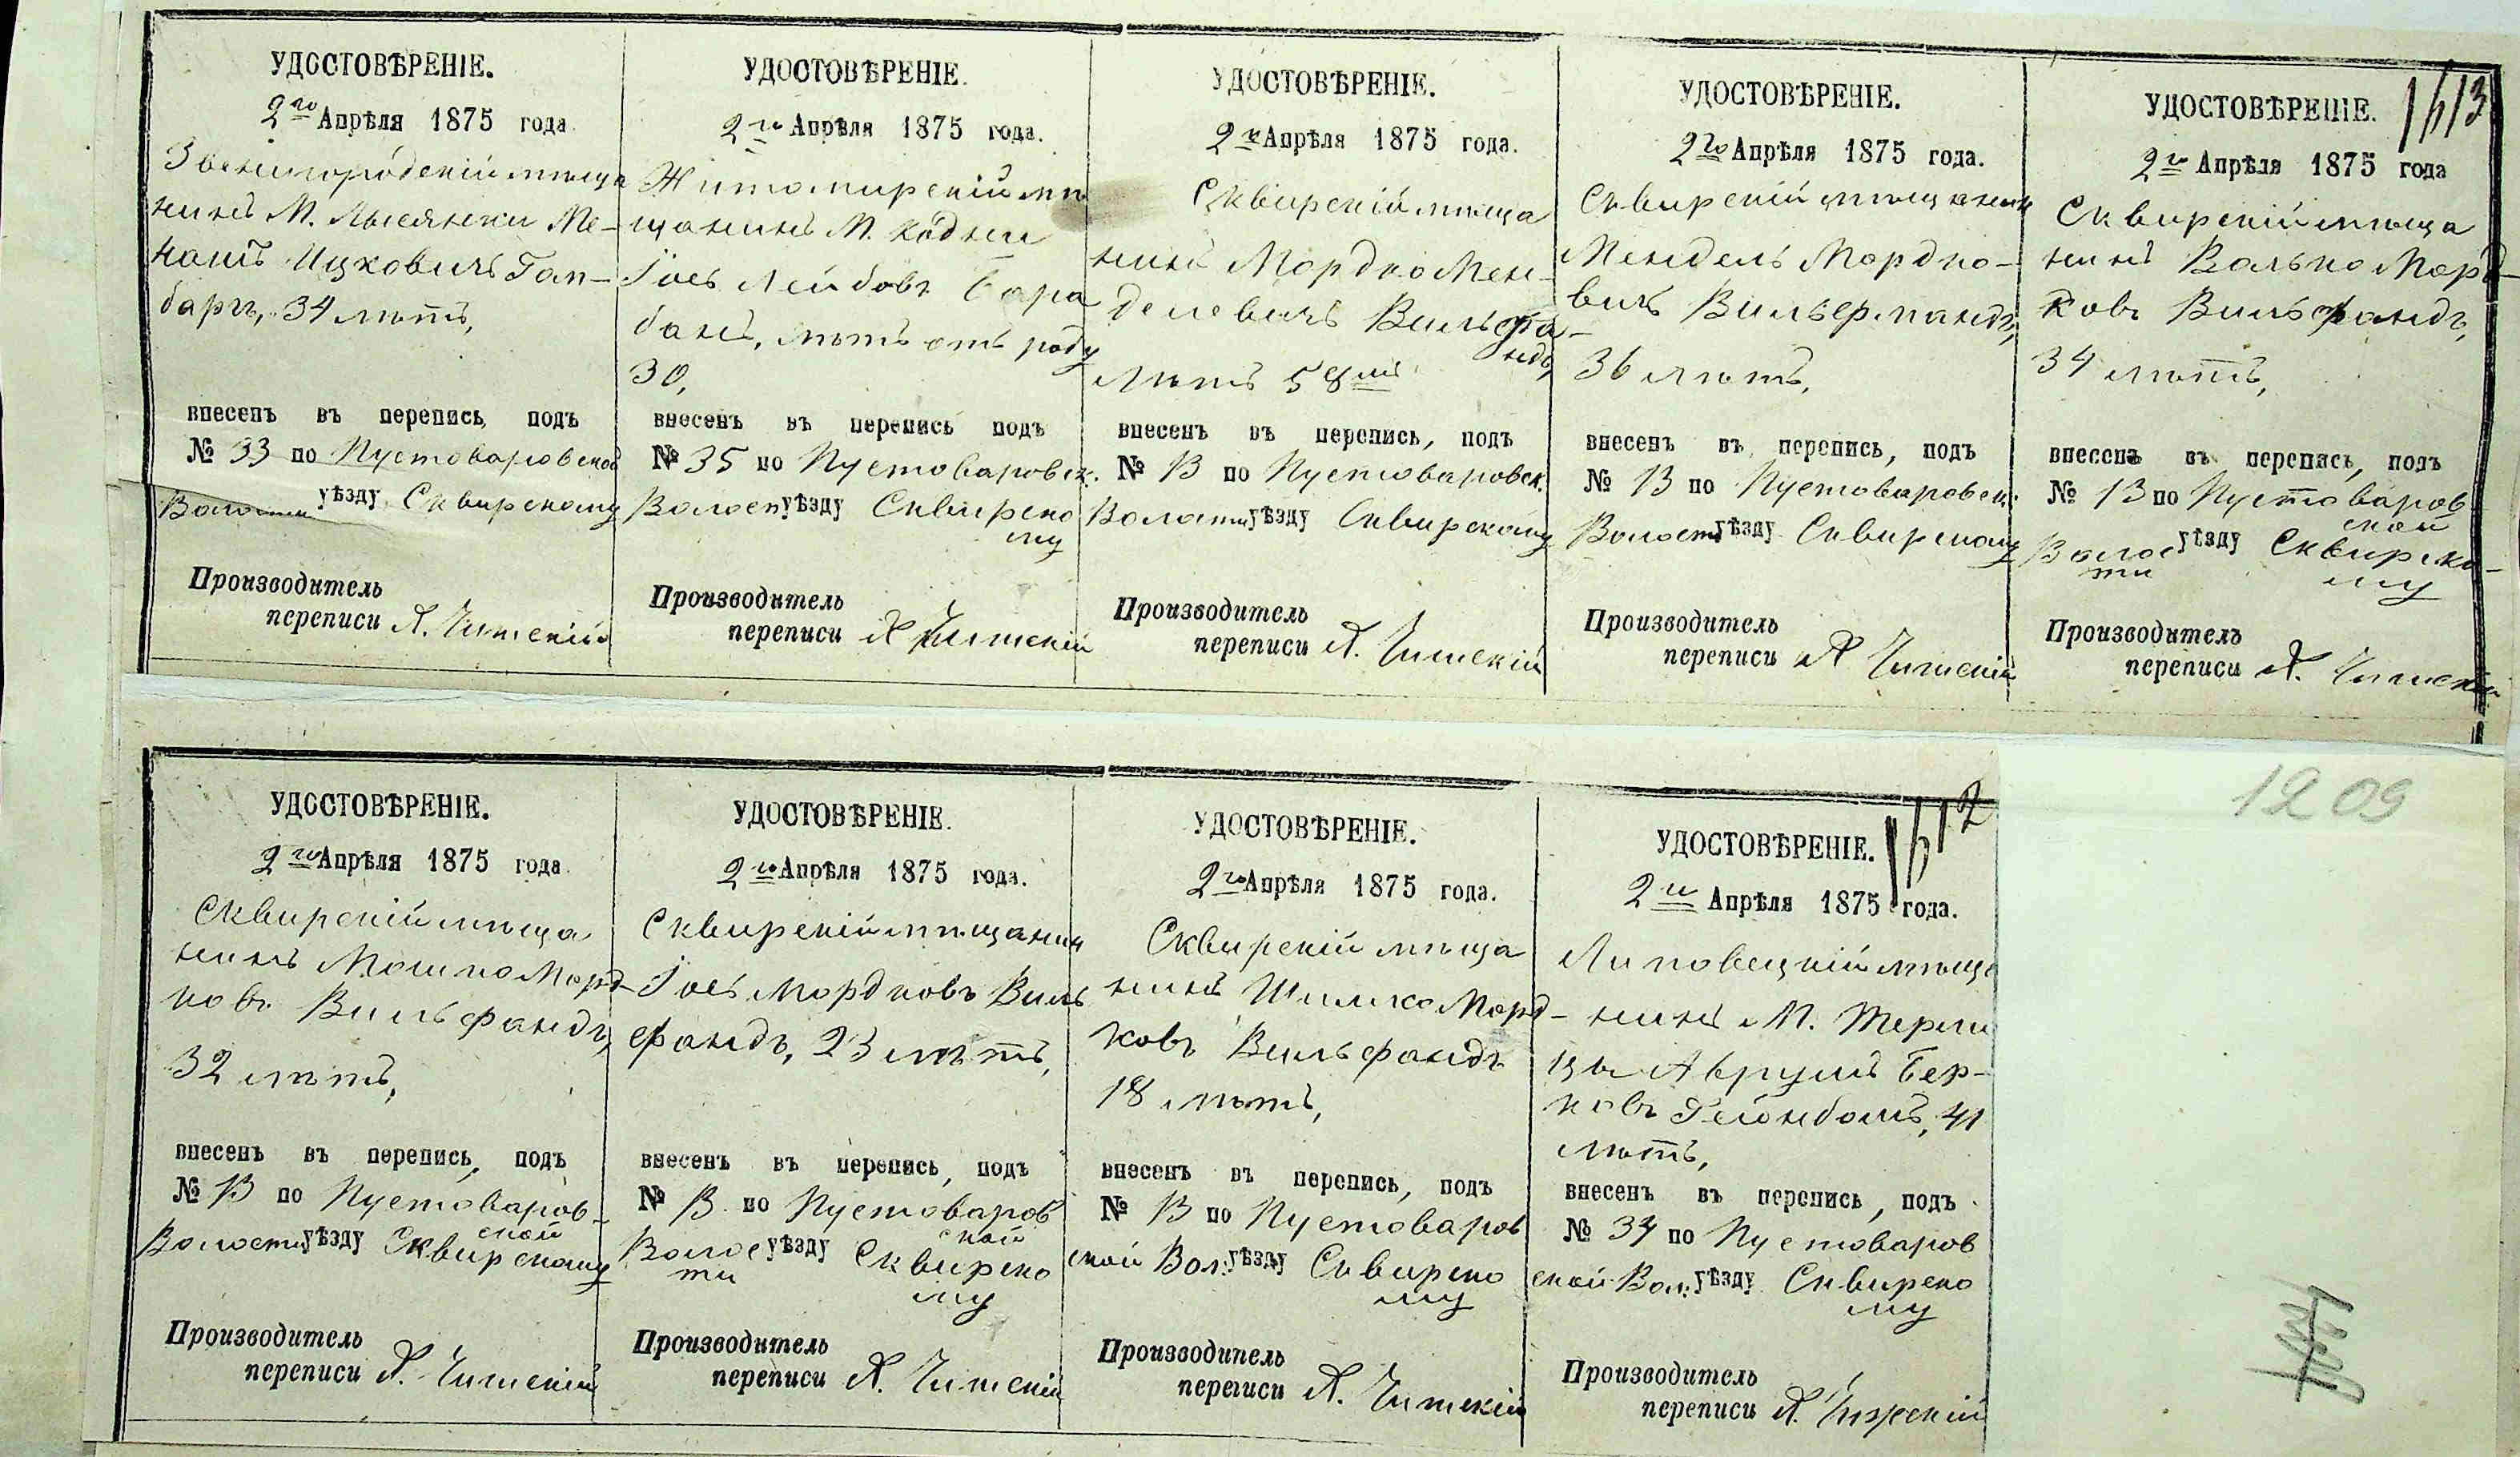 УДОСТОВѢРЕНІЕ.
2го Апрѣля 1875 года.
Звенигородскій мѣща
нинъ М. Лысянки Ме-
нашъ Ицковичъ Гам-
баргъ, 34 лѣтъ,
внесенъ въ перепись, подъ
№ 33 по Пустоваровской
Волости уѣзду Сквирскому
Производитель
переписи А.
УДОСТОВѢРЕНІЕ.
2го Апрѣля 1875 года.
Житомирскій мѣ
щанинъ М. Кодни
Іось Лейбовъ Бара
банъ, лѣтъ отъ роду
30,
внесенъ въ перепись подъ
№ 35 по Пустоваровск.
Волост уѣзду Сквирско
му
Производитель
переписи А
УДОСТОВѢРЕНІЕ.
2го Апрѣля 1875 года.
Сквирскій мѣща
нинъ Мордко Мен-
делевичъ Вильфа-
ндъ,
лѣтъ 58
внесенъ въ перепись, подъ
№ 13 по Пустоваровск.
Волости уѣзду Сквирскому
Производитель
переписи А.
УДОСТОВѢРЕНІЕ.
2го Апрѣля 1875 года.
Сквирскій мѣщанин
Мендель Мордко-
вичъ
36 лѣтъ,
внесенъ въ перепись, подъ
№ 13 по Пустоваровск:
Волости уѣзду Сквирскому
Производитель
переписи А
1613
УДОСТОВѢРЕНІЕ.
2го Апрѣля 1875 года
Сквирскій мѣща
нинъ Волько Морд-
ковъ Вильфандъ,
34 лѣтъ,
внесенъ въ перепись, подъ
№ 13 по Пустоваров
ской
Волос уѣзду Сквирско-
ти му
Производитель
переписи А.
УДОСТОВѢРЕНІЕ.
2го Апрѣля 1875 года.
Сквирскій мѣща
нинъ Мошко Морд-
ковъ Вильфандъ,
32 лѣтъ,
внесенъ въ перепись, подъ
№ 13 по Пустоваров-
ской
Волости уѣзду Сквирскому
Производитель
переписи А.
УДОСТОВѢРЕНІЕ.
2го Апрѣля 1875 года.
Сквирскій мѣщанин
Іось Мордковъ Виль
фандъ, 23 лѣтъ,
внесенъ въ перепись, подъ
№ 13 по Пустоваров
ской
Волос уѣзду Сквирско
ти му
Производитель
переписи А.
УДОСТОВѢРЕНІЕ.
2го Апрѣля 1875 года.
Сквирскій мѣща
нинъ Шимко Морд-
ковъ Вильфандъ
18 лѣтъ,
внесенъ въ перепись, подъ
№ 13 по Пустоваров
ской Вол: уѣзду Сквирско
му
Производитель
переписи А.
1612
УДОСТОВѢРЕНІЕ.
2го Апрѣля 1875 года.
Липовецкій мѣща
нинъ М.
Аврумъ Бер-
ковъ 41
лѣтъ,
внесенъ въ перепись, подъ
№ 34 по Пустоваров
ской Вол: уѣзду Сквирско
му
Производитель
переписи А.
1209